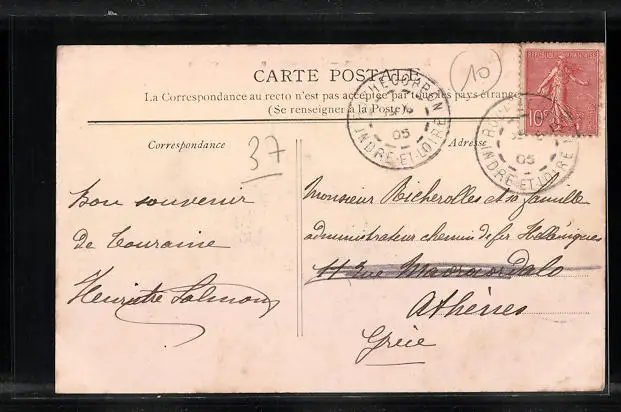 CARTE POSTALE
La Correspondance au recto n'est pas acceptée par tous les pays étrangers
(Se renseigner à la Poste)
10
REPUBLIQUE FRANÇAISE
10c
ROCHECORBON
05
INDRE-ET-LOIRE
05
INDRE-ET-LOIRE
Correspondance
37
Adresse
Bon souvenir
de Touraine
Henriette Salmon
Monsieur Richerolles et sa famille
administrateur chemin de fer Helléniques
11 Rue
Athènes
Grèce